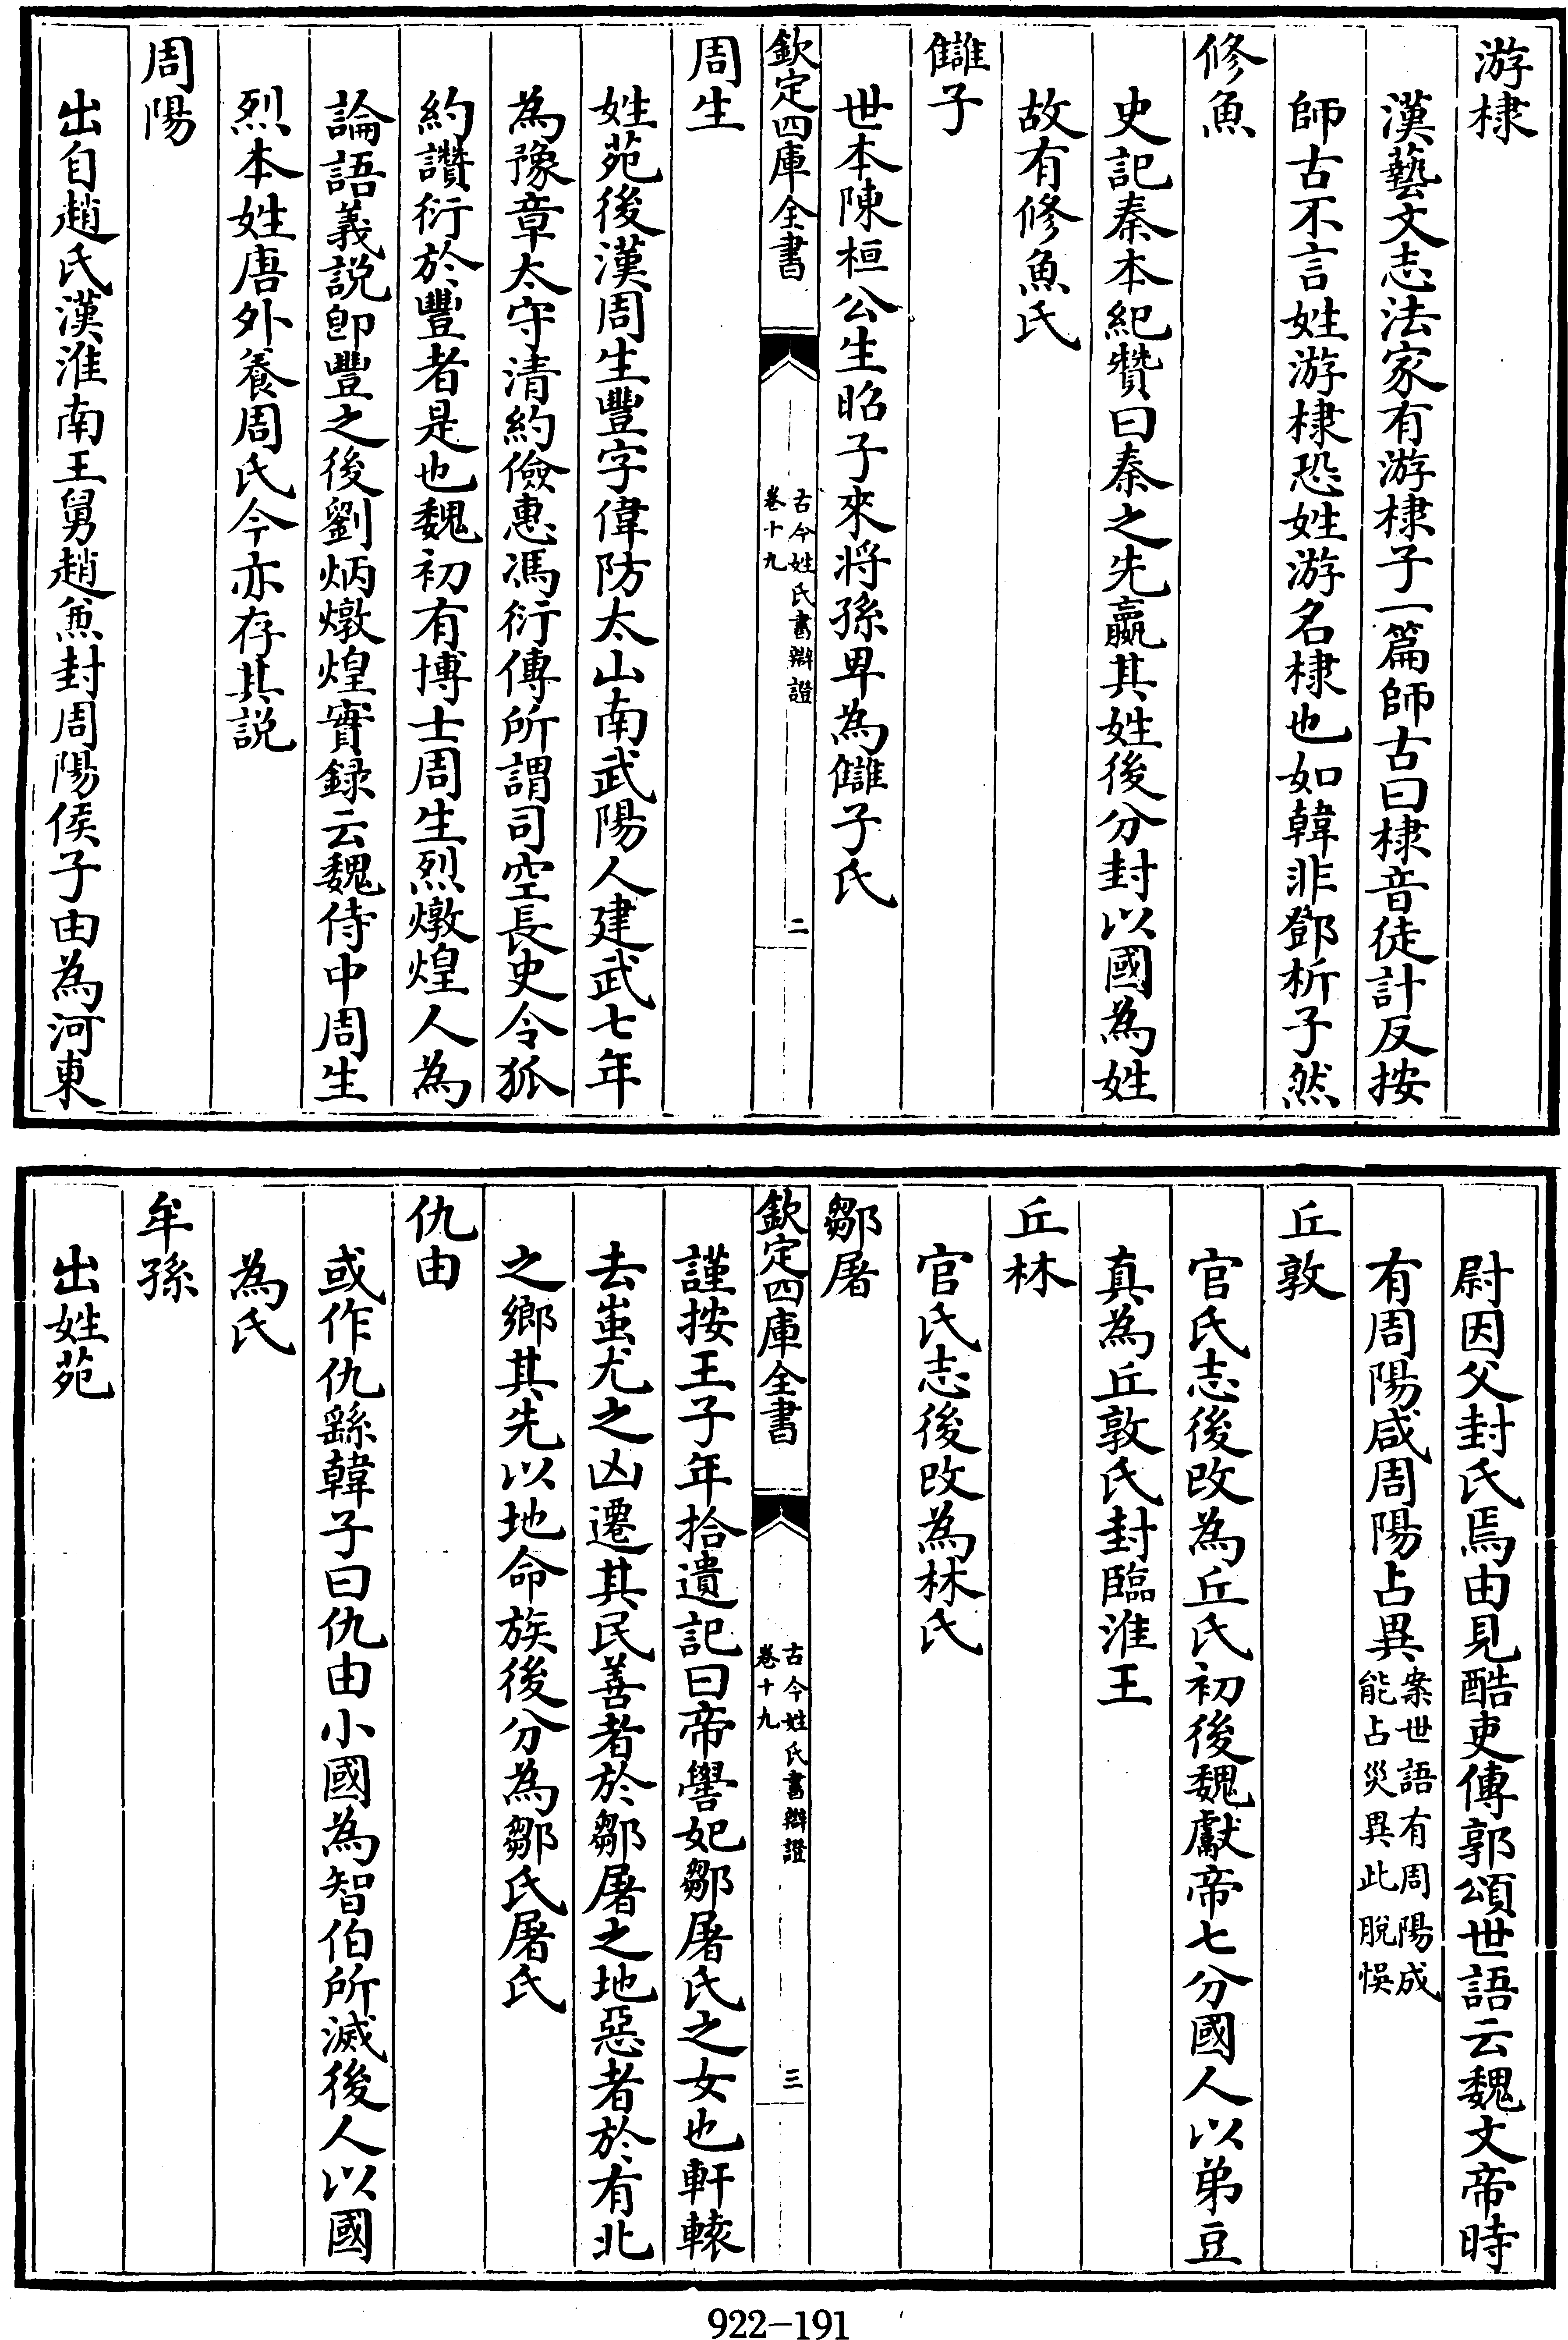 游棣
漢藝文志法家有游棣子一篇師古曰棣音徒計反按
師古不言姓游棣恐姓游名棣也如韓非鄧析子然
修魚
史記秦本紀贊曰秦之先嬴其姓後分封以國為姓
故有修魚氏
讎子
世本陳桓公生昭子來將孫卑為讎子氏
欽定四庫全書
古今姓氏書辯證
卷十九
二
周生
姓苑後漢周生豐字偉防太山南武陽人建武七年
為豫章太守清約儉惠馮衍傳所謂司空長史令狐
約讚衍於豐者是也魏初有博士周生烈燉煌人為
論語義説即豐之後劉炳燉煌實録云魏侍中周生
烈本姓唐外養周氏今亦存其説
周陽
出自趙氏漢淮南王舅趙兼封周陽侯子由為河東
尉因父封氏焉由見酷吏傳郭頒世語云魏文帝時
有周陽咸周陽占異案世語有周陽成
能占災異此脫悞
丘敦
官氏志後改為丘氏初後魏獻帝七分國人以弟豆
真為丘敦氏封臨淮王
丘林
官氏志後改為林氏
鄒屠
欽定四庫全書
古今姓氏書辯證
卷十九
三
謹按王子年拾遺記曰帝嚳妃鄒屠氏之女也軒轅
去蚩尤之凶遷其民善者於鄒屠之地惡者於有北
之鄉其先以地命族後分為鄒氏屠氏
仇由
或作仇繇韓子曰仇由小國為智伯所滅後人以國
為氏
牟孫
出姓苑
922-191